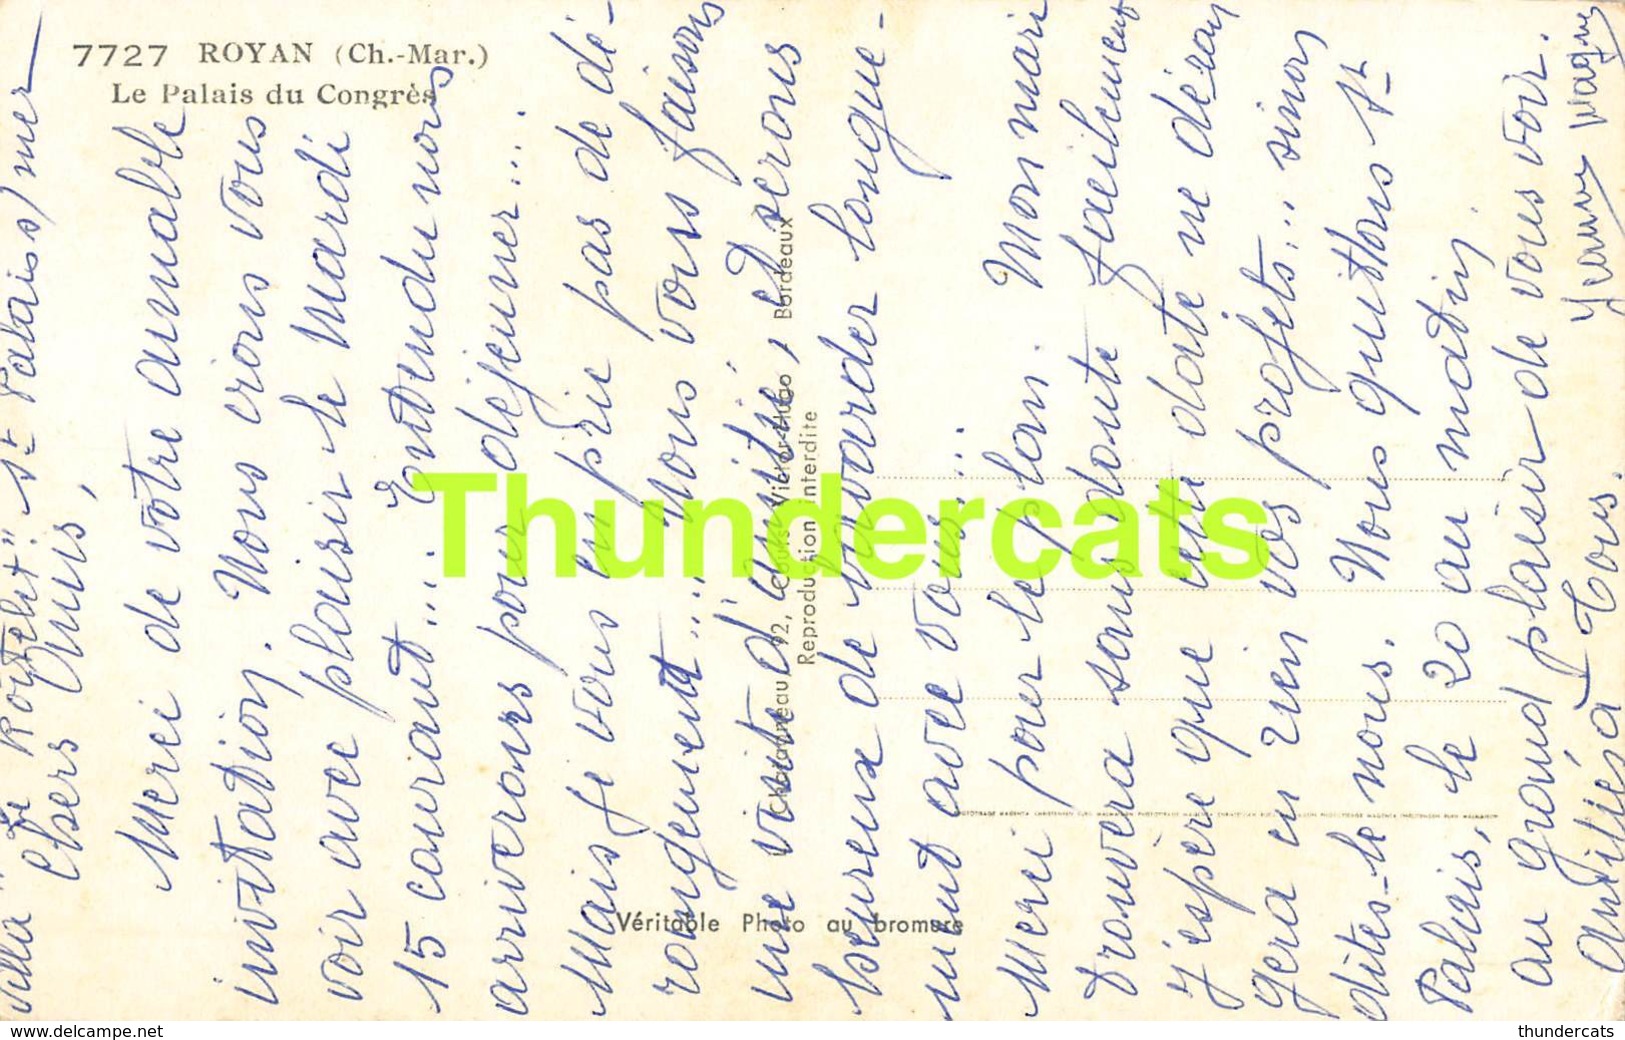 7727 ROYAN (Ch.-Mar.)
Le Palais du Congrès
Villa "Le " St Palais s/mer
Chers Amis,
Merci de votre aimable
invitation. Nous irons vous
voir avec plaisir le Mardi
15 courant... Entendu nous
arriverons pour déjeuner....
Mais je vous en prie pas de dé-
rangement... Nous vous faisons
une visite d'amitié, et serons
heureux de bavarder longue-
ment avec vous...
Merci pour le plan. Mon mari
trouvera sans doute facilement
J'espère que cette date ne déran
gera en rien vos projets... sinon
dites-le nous. Nous quittons St
Palais, le 20 au matin
au grand plaisir de vous voir.
Amitiés à Tous.
Jeanne
Chatagneau 92, Cours Victor-Hugo, Bordeaux
Reproduction interdite
Véritable Photo au bromure
Thundercats
www.delcampe.net
thundercats